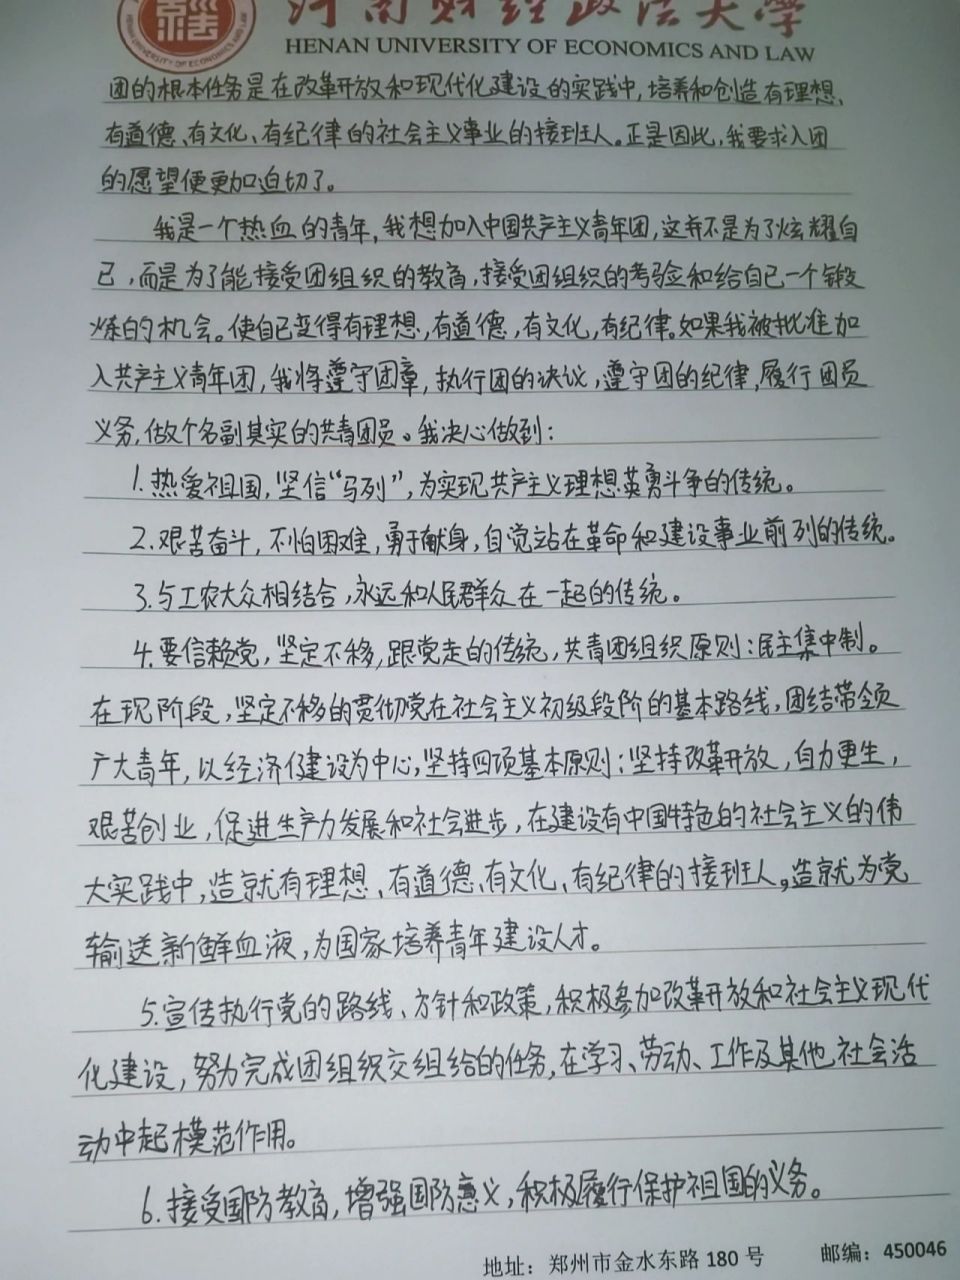 河南财经政法大学
HENAN UNIVERSITY OF ECONOMICS AND LAW
团的根本任务是在改革开放和现代化建设的实践中,培养和创造有理想、
有道德、有文化、有纪律的社会主义事业的接班人。正是因此,我要求入团
的愿望便更加迫切了。
我是一个热血的青年,我想加入中国共产主义青年团,这并不是为了炫耀自
己,而是为了能接受团组织的教育,接受团组织的考验和给自己一个锻
炼的机会。使自己变得有理想,有道德,有文化,有纪律。如果我被批准加
入共产主义青年团,我将遵守团章,执行团的决议,遵守团的纪律,履行团员
义务,做个名副其实的共青团员。我决心做到:
1.热爱祖国,坚信“马列”,为实现共产主义理想英勇斗争的传统。
2.艰苦奋斗,不怕困难,勇于献身,自觉站在革命和建设事业前列的传统。
3.与工农大众相结合,永远和人民群众在一起的传统。
4.要信赖党,坚定不移,跟党走的传统,共青团组织原则:民主集中制。
在现阶段,坚定不移的贯彻党在社会主义初级段阶的基本路线,团结带领
广大青年,以经济建设为中心,坚持四项基本原则;坚持改革开放,自力更生,
艰苦创业,促进生产力发展和社会进步,在建设有中国特色的社会主义的伟
大实践中,造就有理想、有道德、有文化、有纪律的接班人。造就为党
输送新鲜血液,为国家培养青年建设人才。
5.宣传执行党的路线、方针和政策,积极参加改革开放和社会主义现代
化建设,努力完成团组织交组给的任务,在学习、劳动、工作及其他社会活
动中起模范作用。
6.接受国防教育,增强国防意义,积极履行保护祖国的义务。
地址:郑州市金水东路 180 号 邮编:450046